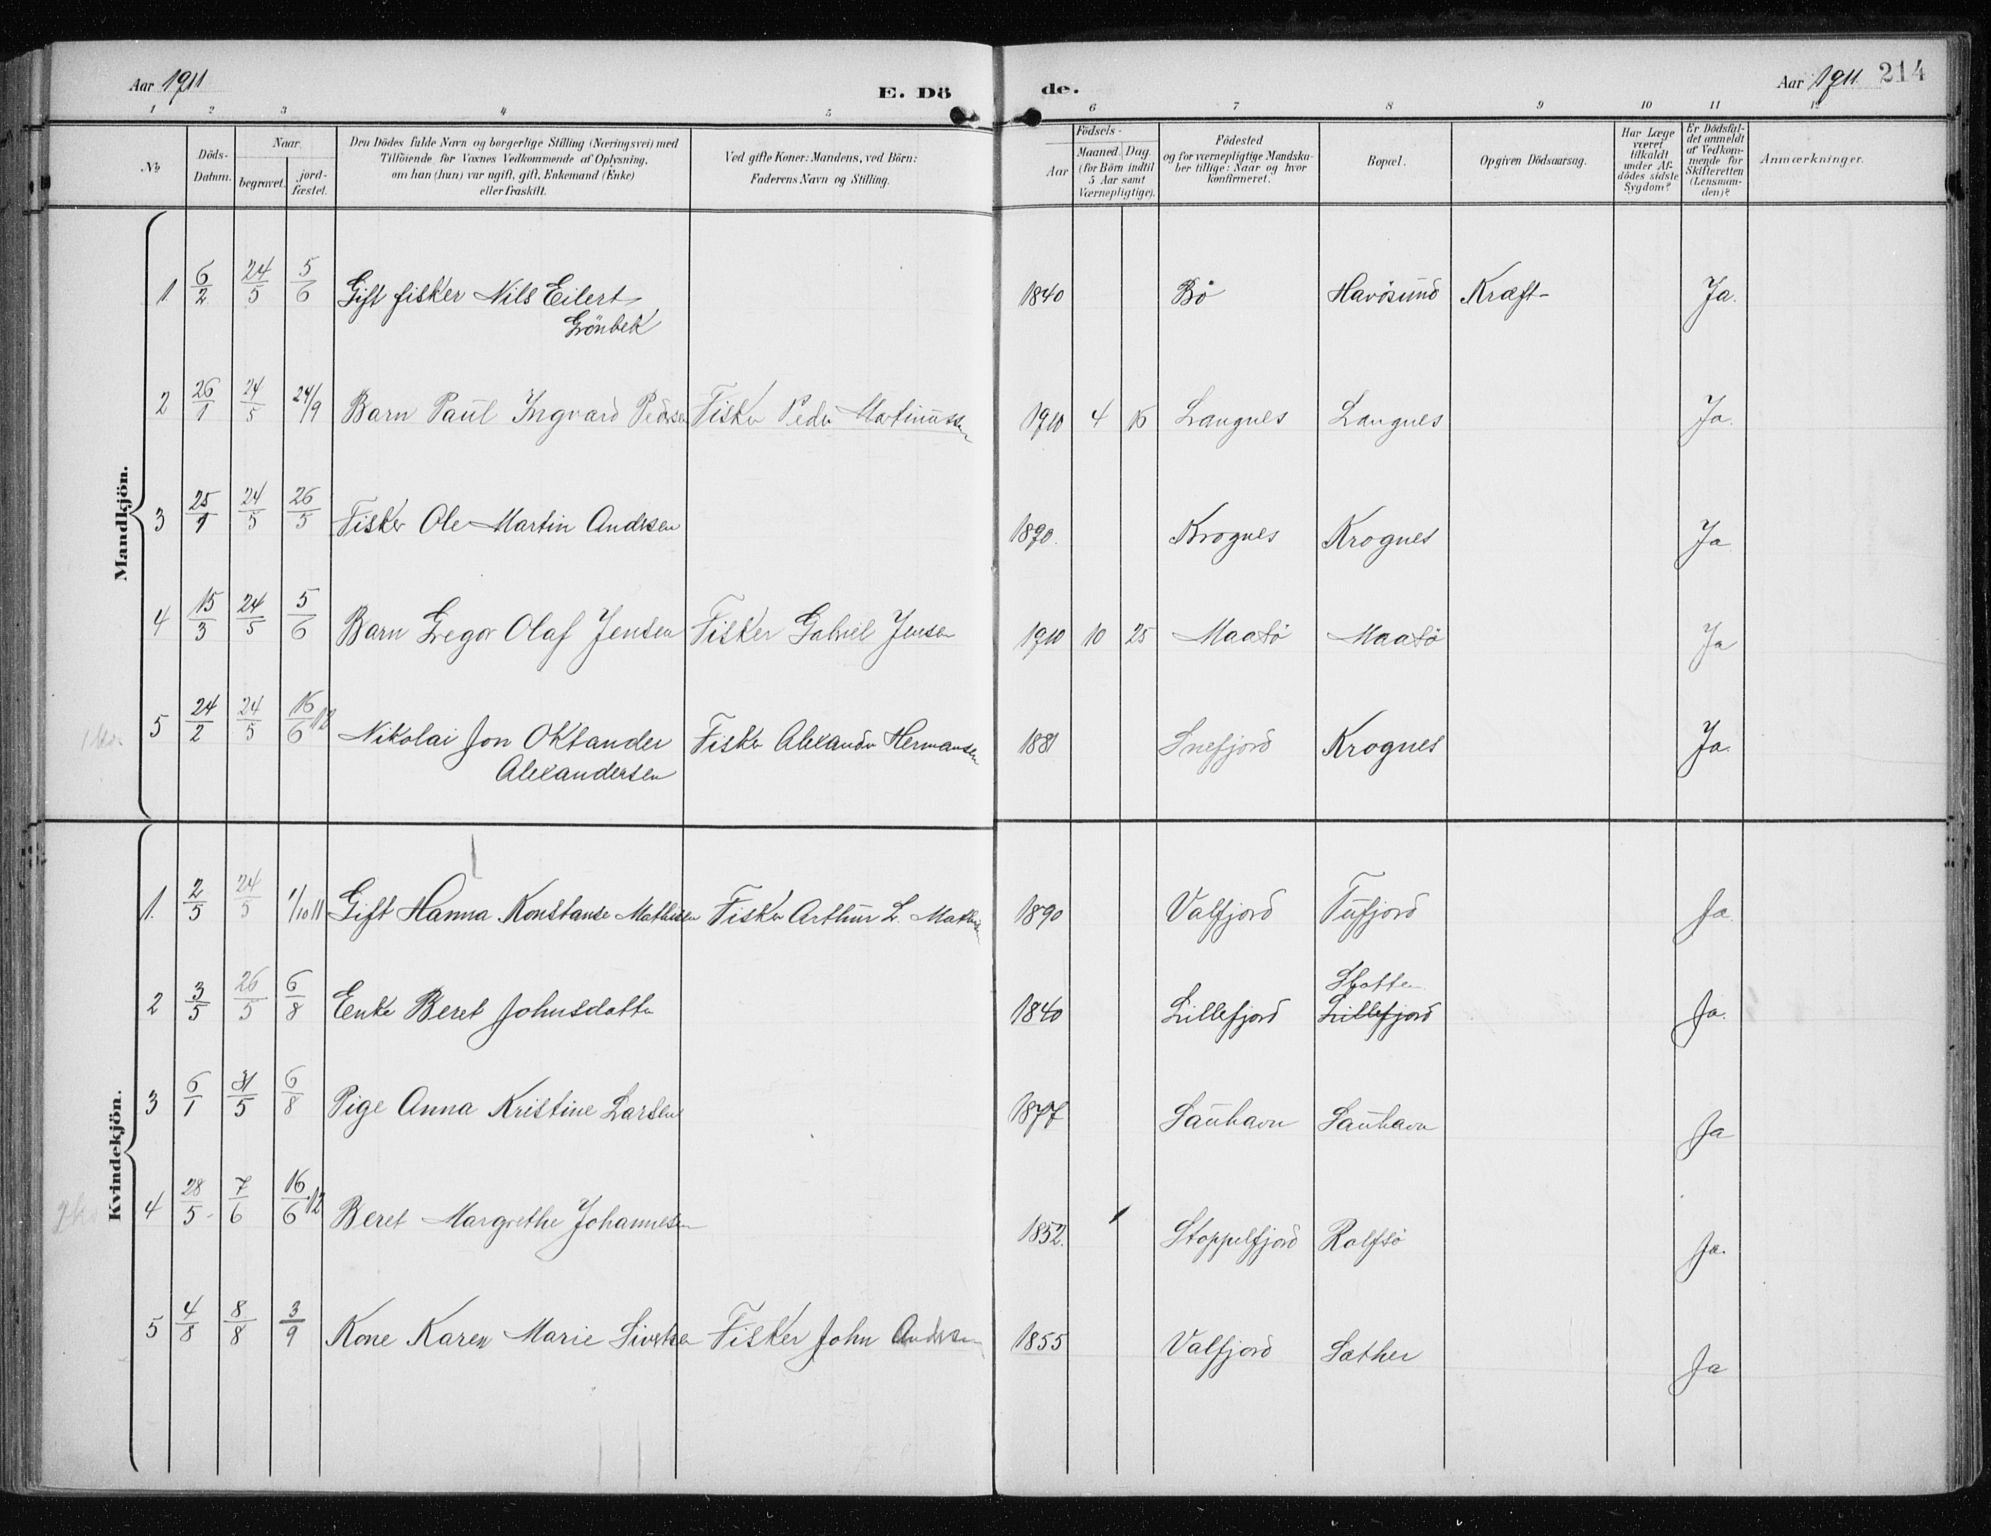 Aar 1911
E. Dö
de.
Aar 1911. 214
1 2 3 4 5 6 7 8 9 10 11 12
No
Döds-
Datum.
Naar
begravet.
jord-
fæstet.
Den Dödes fulde Navn og borgerlige Stilling (Næringsvei) med
Tilföiende for Voxnes Vedkommende af Oplysning,
om han (hun) var ugift, gift, Enkemand (Enke)
eller fraskilt.
Ved gifte Koner: Mandens, ved Börn:
Faderens Navn og Stilling.
Födsels-
Aar
Maaned. Dag.
(for Börn indtil
5 Aar samt
Værnepligtige).
Födested
og for værnepligtige Mandska-
ber tillige: Naar og hvor
konfirmeret.
Bopæl.
Opgiven Dödsaarsag.
Har Læge
været
tilkaldt
under Af-
dödes sidste
Sygdom?
Er Dödsfal-
det anmeldt
af Vedkom-
mende for
Skifteretten
(Lensman-
den)?
Anmærkninger.
Mandkjön.
1 6/2 24/5 5/6 Gift fisker Nils Eilert 1840 Bö Havösund Kræft- Ja.
Grönbek
2 26/1 24/5 24/9 Barn Paul Ingvard Pedersen Fisker Peder Martinussen 1910 4 16 Langnes Langnes Ja.
3 25/1 24/5 26/5 Fisker Ole Martin Andersen 1890. Krognes Krognes Ja
4 15/3 24/5 5/6 Barn Gregor Olaf Jensen Fisker Gabriel Jensen 1910 10 25 Maasö Maasö Ja
5 24/2 24/5 16/6 12 Nikolai Jon Oktander Fisker Alexander Hermansen 1881 Snefjord Krognes Ja.
Alexandersen
Kvindekjön.
1. 2/5 24/5 1/10 11 Gift Hanna Konstanse Mathisen Fisker Arthur L. Mathisen 1890 Valfjord Tufjord Ja.
Slotten
2 3/5 26/5 6/8 Enke Beret Johnsdatter 1840 Lillefjord Lillefjord Ja.
3 6/1 31/5 6/8 Pige Anna Kristine Larsen 1877 Sauhavn Sauhavn Ja
4 28/5 7/6 16/6 12 Beret Margrethe Johannesen 1852. Stoppelfjord Rolfsö Ja.
5 4/8 8/8 3/9 Kone Karen Marie Sivertsen Fisker John Andersen 1855 Valfjord Sæther Ja